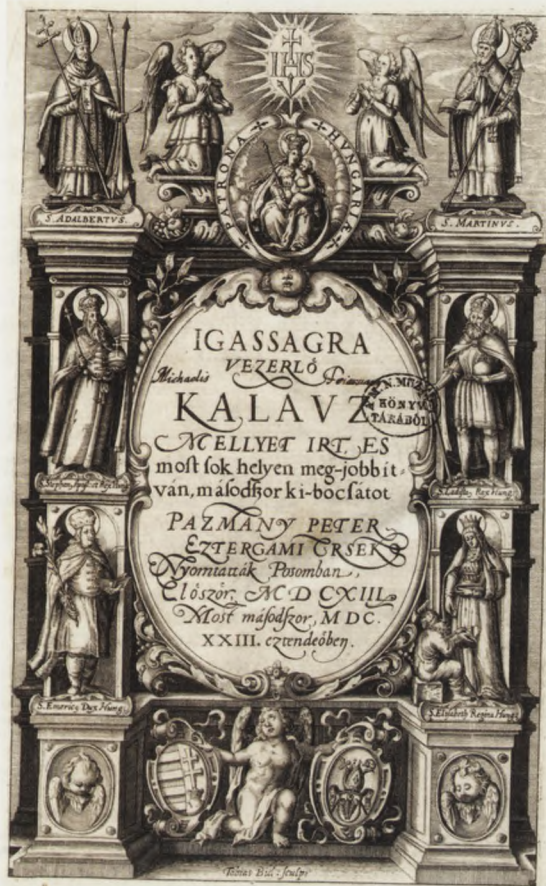 IHS
PATRONA HUNGARIÆ
S. ADALBERTVS.
S. MARTINVS.
IGASSAGRA
VEZERLŐ
Michaelis
KALAVZ
N. MUZ.
KÖNYV
TÁRÁBÓL
MELLYET IRT, ES
most sok helyen meg-jobbít-
ván, másodszor ki-bocsátot
PAZMANY PETER
EZTERGAMI ERSEK
Nyomtatták Posomban,
Először, MDCXIII.
Most másodszor, MDC.
XXIII. eztendőben.
S. Ladislaus Rex Hung.
S. Emericus Dux Hung.
S. Elisabeth Regina Hung.
Tobias sculps